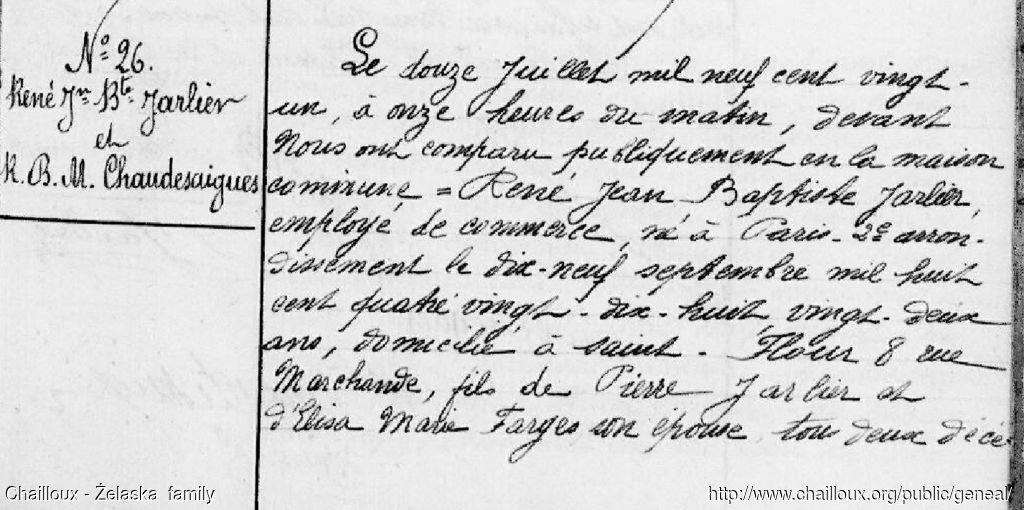 N° 26.
René Jn Bte Jarlier
et
R. B. M. Chaudesaigues
Le douze Juillet mil neuf cent vingt-
un, à onze heures du matin, devant
Nous ont comparu publiquement en la maison
commune = René Jean Baptiste Jarlier,
employé de commerce, né à Paris - 2e arron-
dissement le dix-neuf septembre mil huit
cent quatre vingt-dix-huit, vingt-deux
ans, domicilié à Saint-Flour 8 rue
Marchande, fils de Pierre Jarlier et
d'Elisa Marie Farges son épouse tous deux décé
Chailloux - Želaska family
http://www.chailloux.org/public/geneal/